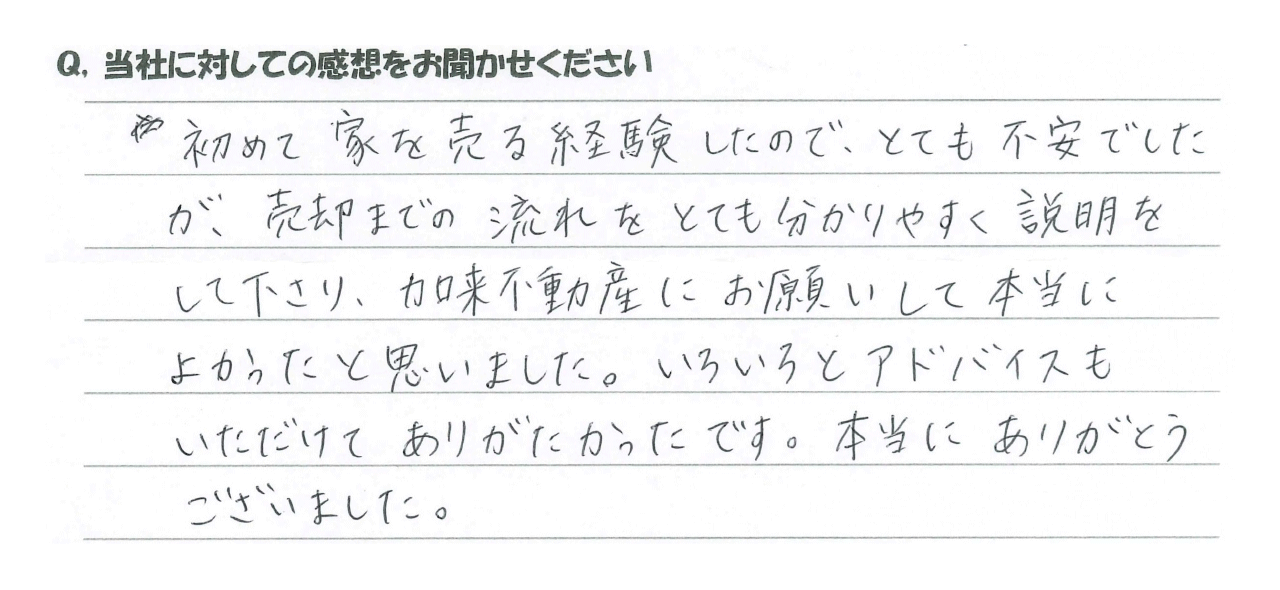 Q. 当社に対しての感想をお聞かせください
初めて家を売る経験したので、とても不安でした
が、売却までの流れをとても分かりやすく説明を
して下さり、加来不動産にお願いして本当に
よかったと思いました。いろいろとアドバイスも
いただけてありがたかったです。本当にありがとう
ございました。